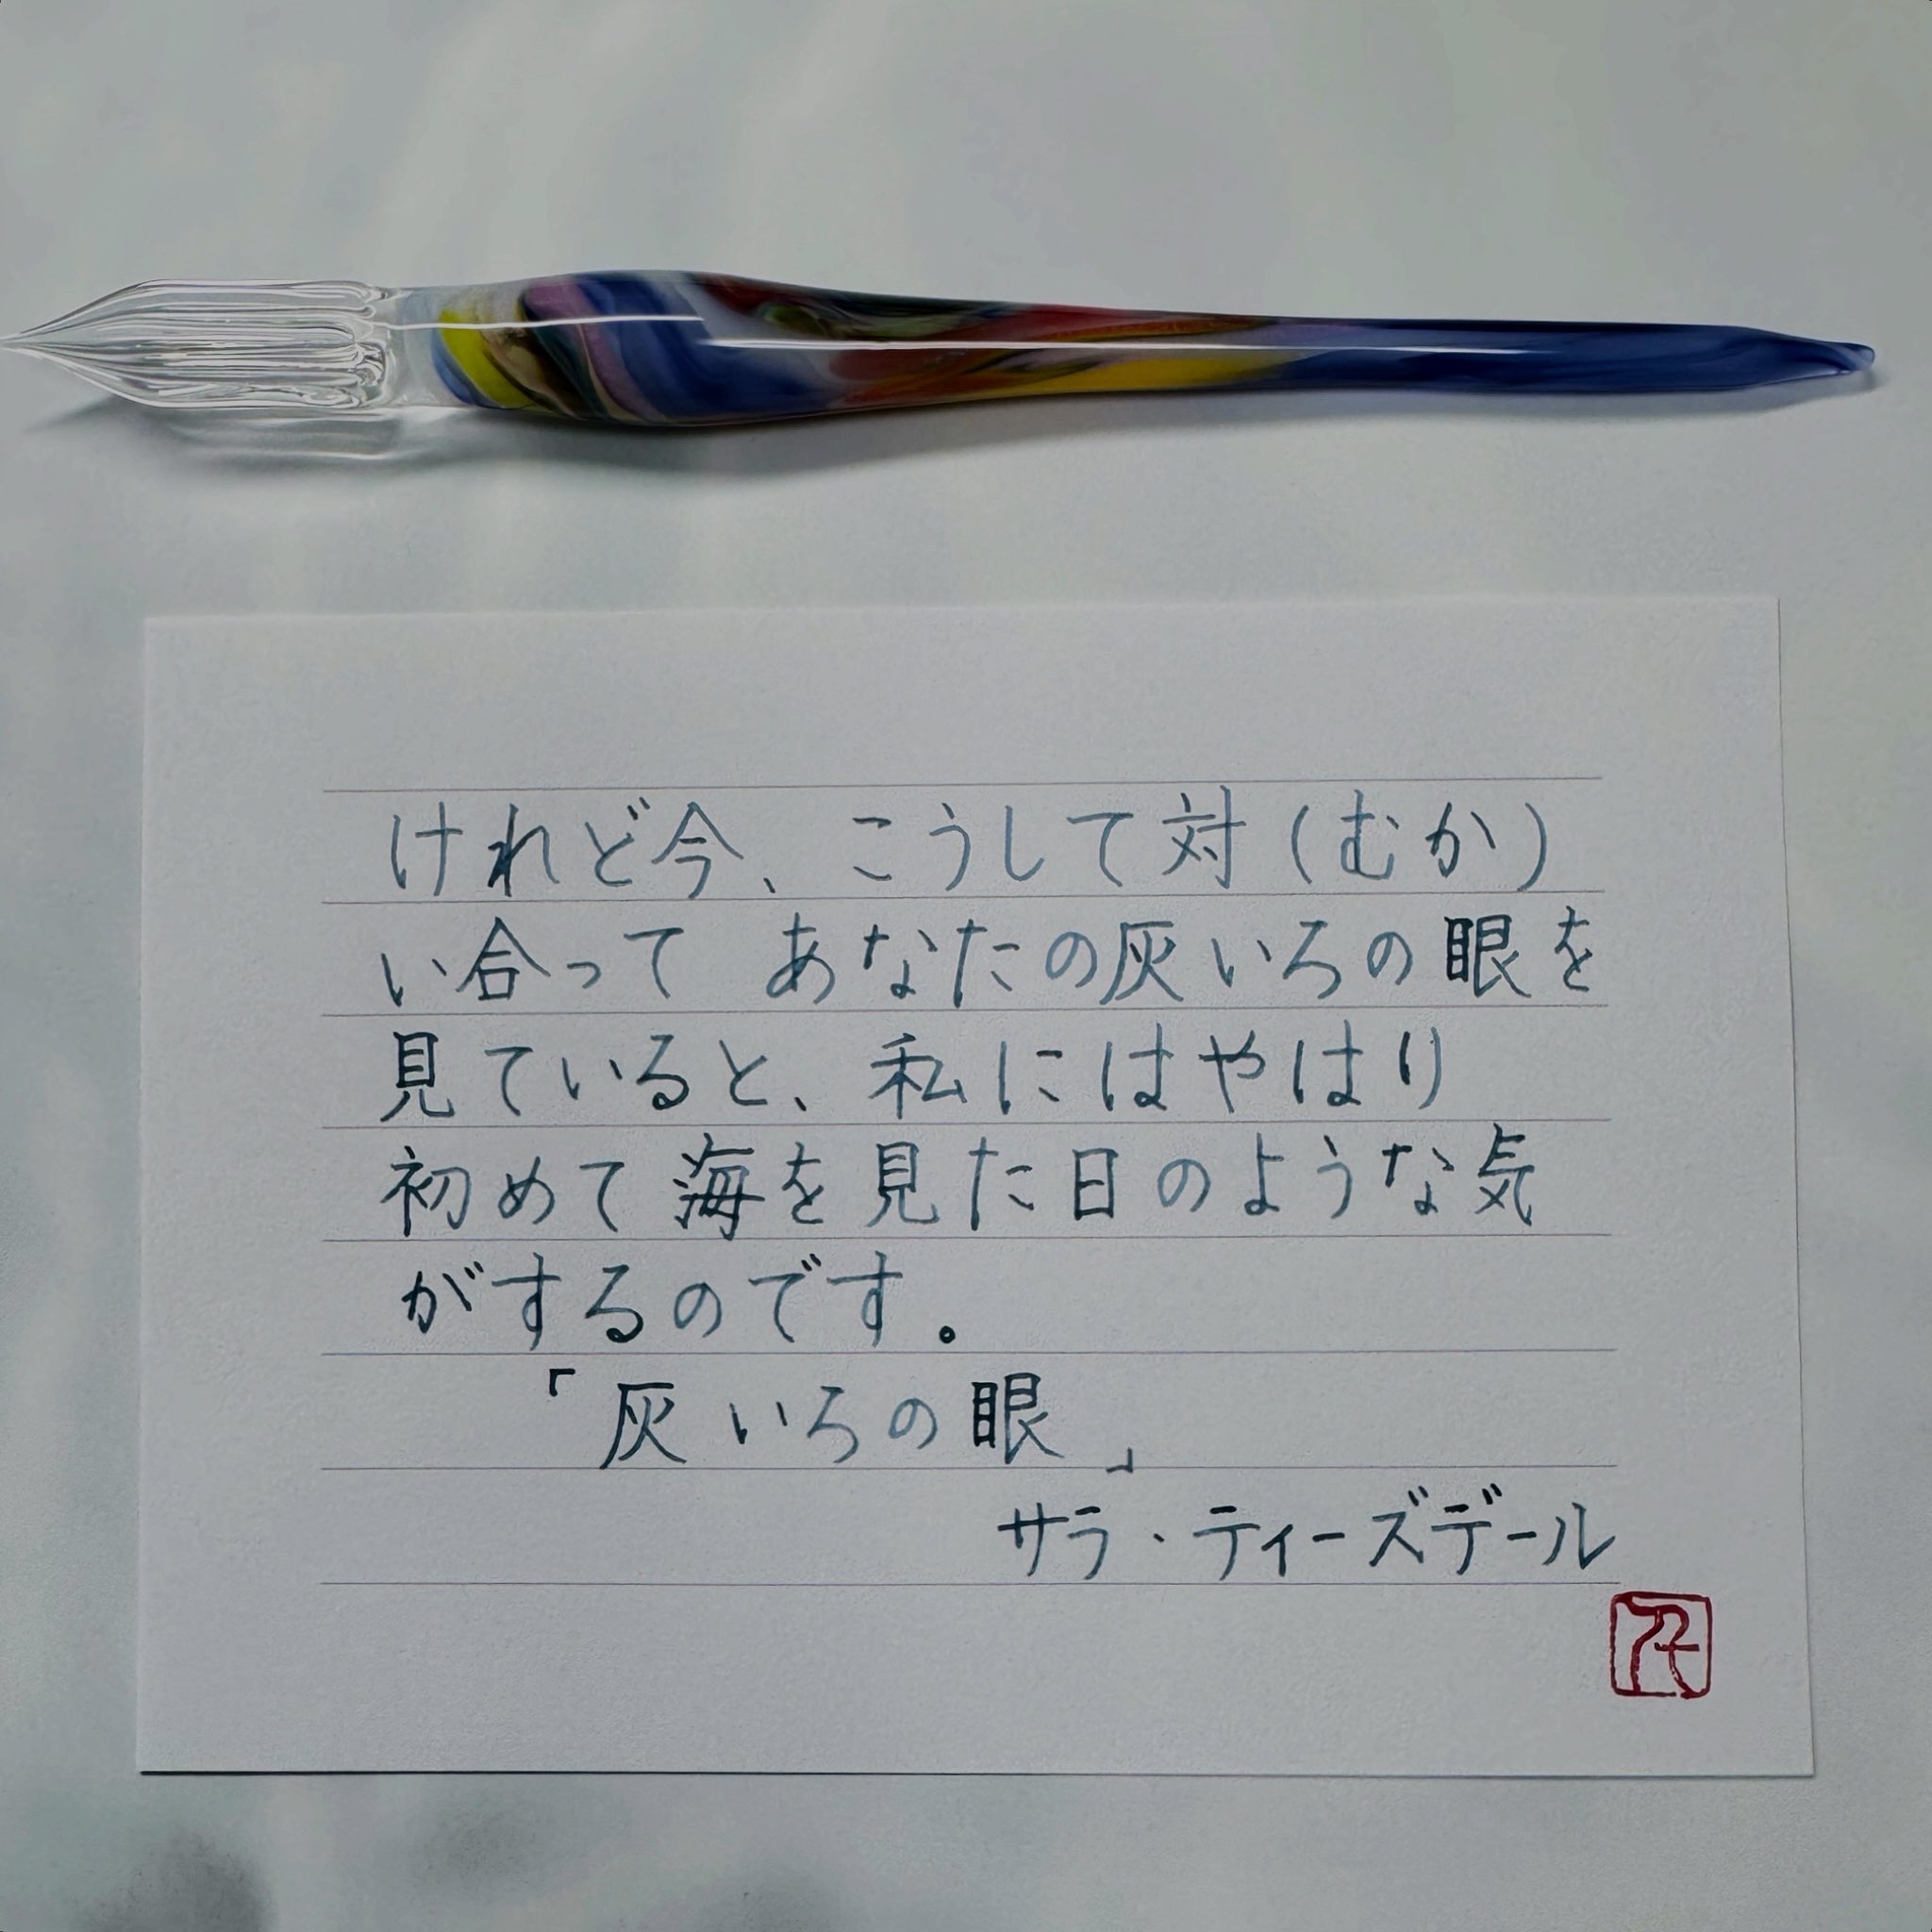 けれど今、こうして対(むか)
い合って　あなたの灰いろの眼を
見ていると、私にはやはり
初めて海を見た日のような気
がするのです。
「灰いろの眼」
サラ・ティーズデール